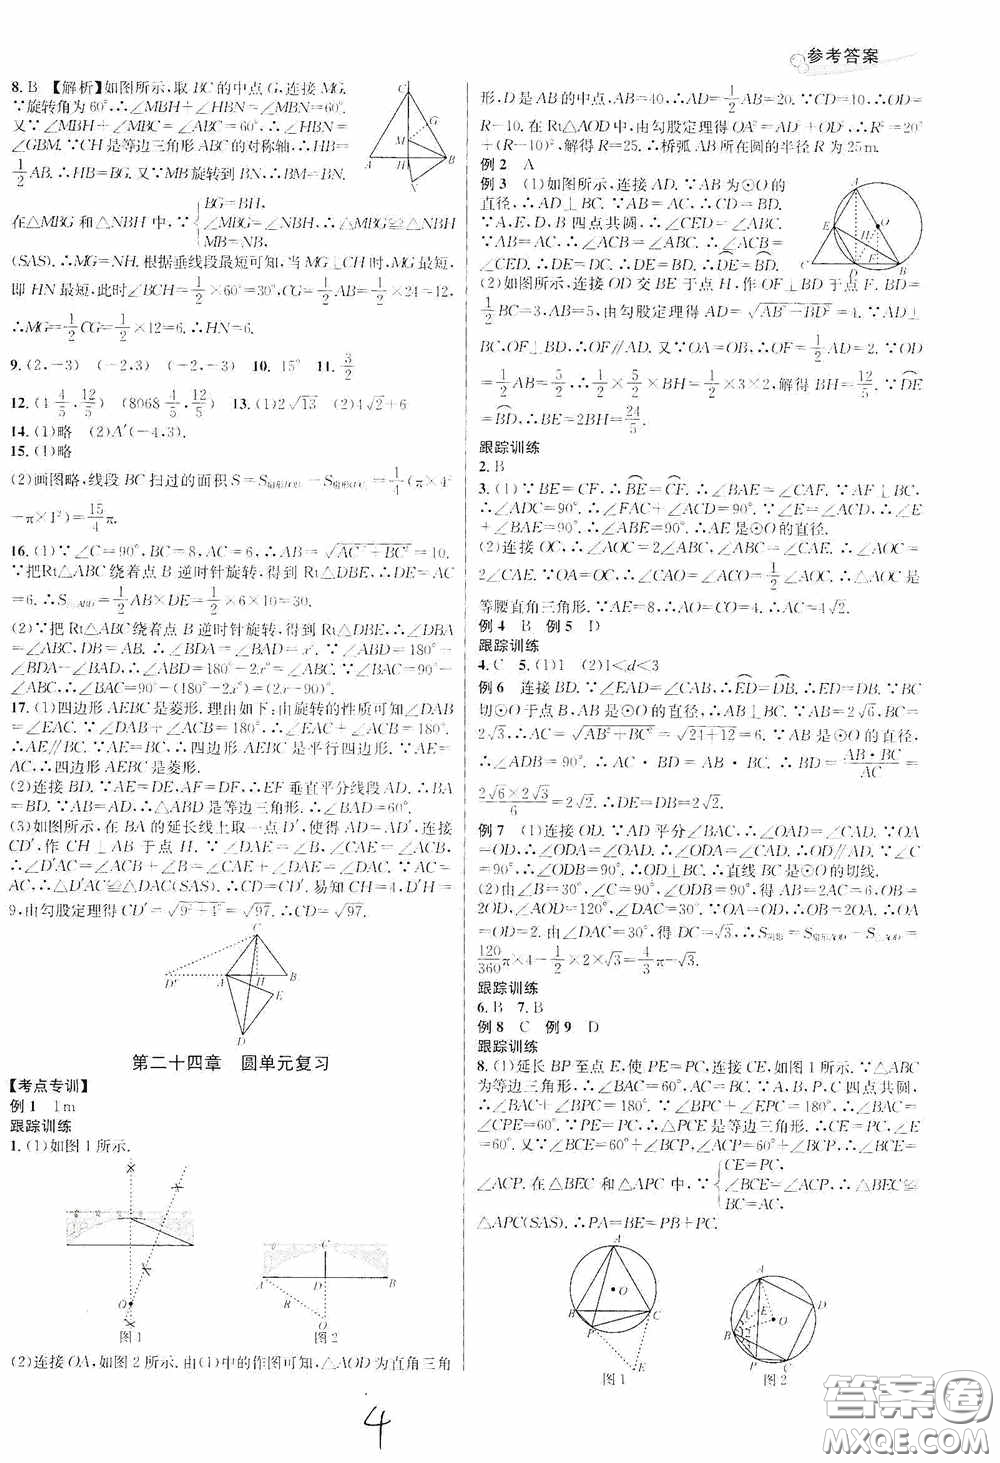 参考答案
8. B 【解析】如图所示,取 BC 的中点 G,连接 MG.
∵旋转角为 60°,∴∠MBH+∠HBN=∠HBN=60°.
又∵∠MBH+∠GBM=∠ABC=60°,∴∠HBN=
∠GBM. ∵CH 是等边三角形 ABC 的对称轴,∴HB=
1/2 AB. ∴HB=BG. 又∵MB 旋转到 BN,∴BM=BN.
在△MBG 和△NBH 中,∵ { BG=BH, ∠GBM=∠HBN, MB=NB, ∴△MBG≌△NBH
(SAS). ∴MG=NH. 根据垂线段最短可知,当 MG⊥CH 时,MG 最短,
即 HN 最短,此时∠BCH=1/2×60°=30°,CG=1/2AB=1/2×24=12,
∴MG=1/2CG=1/2×12=6. ∴HN=6.
9. (2,-3) (-2,3) (-2,-3) 10. 15° 11. 3/2
12. (4 4/5, 12/5) (8068 4/5, 12/5) 13. (1)2√13 (2)4√2+6
14. (1)略 (2)A′(-4,3).
15. (1)略
(2)画图略,线段 BC 扫过的面积 S=
-π×1²)=15/4 π.
16. (1)∵∠C=90°,BC=8,AC=6,∴AB=√(AC²+BC²)=10.
∵把Rt△ABC 绕着点 B 逆时针旋转,得到 Rt△DBE,∴DE=AC
=6. ∴S△ABD=1/2 AB×DE=1/2×6×10=30.
(2)∵把 Rt△ABC 绕着点 B 逆时针旋转,得到 Rt△DBE,∴∠DBA
=∠ABC,DB=AB. ∴∠BAD=∠BDA=x°. ∴∠ABD=180°
-∠BDA-∠BAD,∴∠ABD=180°-2x°=∠ABC. ∵∠BAC=90°-
∠ABC,∴∠BAC=90°-(180°-2x°)=2x°-90°.
17. (1)四边形 AEBC 是菱形. 理由如下:由旋转的性质可知∠DAB
=∠EAC. ∵∠DAB+∠ACB=180°,∴∠EAC+∠ACB=180°.
∴AE∥BC. 又∵AC∥BE,∴四边形 AEBC 是平行四边形. ∵AC=
AE,∴四边形 AEBC 是菱形.
(2)连接 BD. ∵AE=DE,AF=DF,∴EF 垂直平分线段 AD. ∴BA
=BD. ∵AB=AD,∴△ABD 是等边三角形,∴∠BAD=60°.
(3)如图所示,在 BA 的延长线上取一点 D′,使得 AD=AD′,连接
CD′,作 CH⊥AB 于点 H. ∵∠DAE=∠B,∠CAE=∠DAE,
∴∠D′AC=∠ACB+∠B=∠CAE+∠DAE=∠DAC. ∵AC=
AC,∴△D′AC≌△DAC(SAS). ∴CD=CD′. 易知 CH=4,D′H=
9,由勾股定理得 CD′=√(9²+4²)=√97. ∴CD=√97.
C
D′ A H B
E
D
第二十四章 圆单元复习
【考点专训】
例 1 1m
跟踪训练
1. (1)如图 1 所示.
图 1
图 2
(2)连接 OA,如图 2 所示. 由(1)中的作图可知,△AOD 为直角三角
形,D 是 AB 的中点,AB=40,∴AD=1/2 AB=20. ∵CD=10,∴OD=
R-10. 在 Rt△AOD 中,由勾股定理得 OA²=AD²+OD²,∴R²=20²
+(R-10)²,解得 R=25. ∴桥弧 AB 所在圆的半径 R 为 25m.
例 2 A
例 3 (1)如图所示,连接 AD. ∵AB 为⊙O 的
直径,∴AD⊥BC. ∴∠ADB=∠ADC=90°.
∵A,E,D,B 四点共圆,∴∠CED=∠ABC.
∵AB=AC,∴∠ACB=∠ABC. ∴∠ACB=
∠CED. ∴DE=DC. ∴DE=BD. ∴DE=BD.
(2)如图所示,连接 OD 交 BE 于点 H,作 OF⊥BD 于点 F. BD=
1/2 BC=3,AB=5,由勾股定理得 AD=√(AB²-BD²)=4. ∵AD⊥
BC,OF⊥BD,∴OF∥AD. 又∵OA=OB,∴OF=1/2 AD=2. ∵OF
=1/2×5/2×BH=1/2×3×2,解得 BH=12/5. ∵DE
=BD,∴BE=2BH=24/5.
跟踪训练
2. B
3. (1)∵BE=CF,∴BE=CF. ∴∠BAE=∠CAF. ∵AF⊥BC,
∴∠ADC=90°. ∴∠FAC+∠ACD=90°. ∵∠E=∠ACD,∴∠E
+∠BAE=90°. ∴∠ABE=90°. ∴AE 是⊙O 的直径.
(2)连接 OC,∴∠AOC=2∠ABC. ∵∠ABC=∠CAE. ∴∠AOC=
2∠CAE. ∵OA=OC,∴∠CAO=∠ACO=1/2∠AOC,∴△AOC 是
等腰直角三角形. ∵AE=8,∴AO=CO=4. ∴AC=4√2.
例 4 B 例 5 D
跟踪训练
4. C 5. (1)1 (2)1<d<3
例 6 连接 BD. ∵∠EAD=∠CAD,∴ED=DB,∴DE=DB. ∵BC
切⊙O 于点 B,AB 是⊙O 的直径,∴AB⊥BC. ∵AB=2√6,BC=
2√3,∴AC=√(AB²+BC²)=√(24+12)=6. ∵AB 是⊙O 的直径,
∴∠ADB=90°. ∴AC·BD=AB·BC. ∴BD=(AB·BC)/AC=
(2√6×2√3)/6=2√2. ∴DE=DB=2√2.
例 7 (1)连接 OD. ∵AD 平分∠BAC,∴∠OAD=∠CAD. ∵OA
=OD,∴∠OAD=∠ODA. ∴∠ODA=∠CAD. ∴OD∥AD. 又∵∠C
=90°,∴∠ODB=90°. ∴OD⊥BC. ∴直线 BC 是⊙O 的切线.
(2)由∠B=30°,∠C=90°,∠ODB=90°,得 AB=2AC=6,OB=
2OD,∠AOD=120°,∠DAC=30°. ∵OA=OD,∴OB=2OA,∴OA
=OD=2. 由∠DAC=30°,得 DC=√3,
120/360 π×4-1/2×2×√3=4/3 π-√3.
跟踪训练
6. B 7. B
例 8 C 例 9 D
跟踪训练
8. (1)延长 BP 至点 E,使 PE=PC,连接 CE,如图 1 所示. ∵△ABC
为等边三角形,∴∠BAC=60°. ∵A,B,P,C 四点共圆,
∴∠BAC+∠BPC=180°. ∵∠BPC+∠CPE=180°,∴∠BAC=
∠CPE=60°. ∵PE=PC,∴△PCE 是等边三角形. ∴CE=PC,∠E
=60°. 又∵∠BCE=60°+∠BCP,∠ACP=60°+∠BCP,∴∠BCE=
∠ACP. 在△BEC 和△APC 中,∵ { CE=PC, ∠BCE=∠ACP, BC=AC, ∴△BEC≌
△APC(SAS). ∴PA=BE=PB+PC.
图 1
图 2
4
答案圈
MXQE.COM